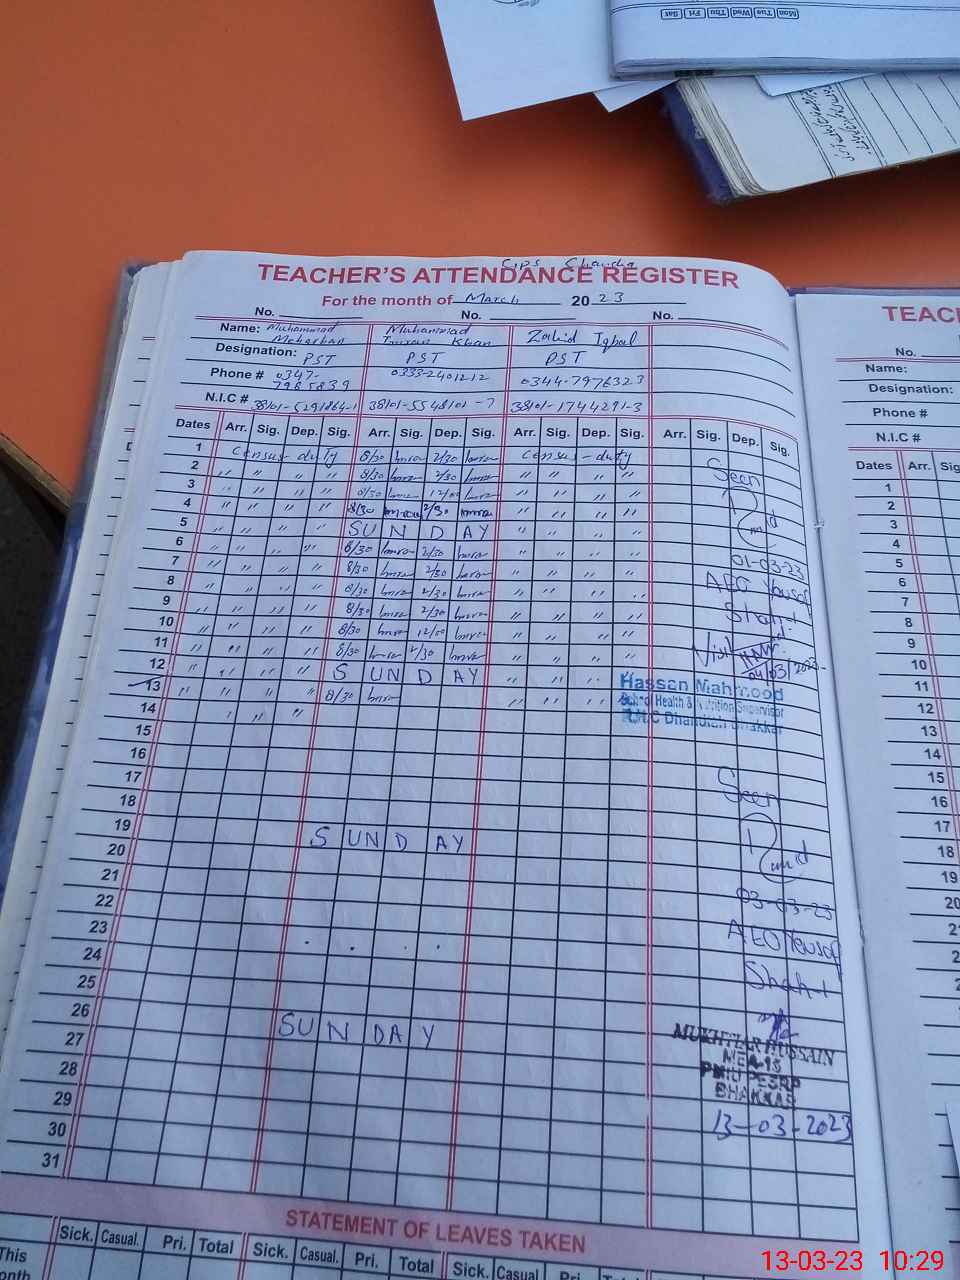 Mon Tue Wed Thu Fri Sat
GPS
TEACHER'S ATTENDANCE REGISTER
For the month of March 2023
No. No. No.
Name: Muhammad Meharban Muhammad Imran Khan Zahid Iqbal
Designation: PST PST PST
Phone # 0347-7985839 0333-2401212 0344-7976323
N.I.C # 38101-5291864-1 38101-5548101-7 38101-1744291-3
Dates Arr. Sig. Dep. Sig. Arr. Sig. Dep. Sig. Arr. Sig. Dep. Sig. Arr. Sig. Dep. Sig.
1 Census-duty 8/30 Imran 2/30 Imran Census-duty
2 " " " " 8/30 Imran 2/30 Imran " " " "
3 " " " " 8/30 Imran 12/00 Imran " " " "
4 " " " " 8/30 Imran 2/30 Imran " " " "
5 " " " " SUNDAY " " " "
6 " " " " 8/30 Imran 2/30 Imran " " " "
7 " " " " 8/30 Imran 2/30 Imran " " " "
8 " " " " 8/30 Imran 2/30 Imran " " " "
9 " " " " 8/30 Imran 2/30 Imran " " " "
10 " " " " 8/30 Imran 12/00 Imran " " " "
11 " " " " 8/30 Imran 2/30 Imran " " " "
12 " " " " SUNDAY " " " "
13 " " " " 8/30 Imran " " " "
14 " " "
15
16
17
18
19 SUNDAY
20
21
22
23
24
25
26 SUNDAY
27
28
29
30
31
Seen
01-03-23
AEO Yousaf
Shah-1
Visit
04/03/2023
Hassan Mahmood
School Health & Nutrition Supervisor
Dhandlah Bhakkar
Seen
03-03-23
AEO Yousaf
Shah-1
MUKHTIAR HUSSAIN
MEA-18
PMIU PESRP
BHAKKAR
13-03-2023
STATEMENT OF LEAVES TAKEN
Sick. Casual. Pri. Total Sick. Casual. Pri. Total Sick. Casual Pri. Total
This
TEAC
No.
Name:
Designation:
Phone #
N.I.C #
Dates Arr. Sig
1
2
3
4
5
6
7
8
9
10
11
12
13
14
15
16
17
18
19
20
13-03-23 10:29